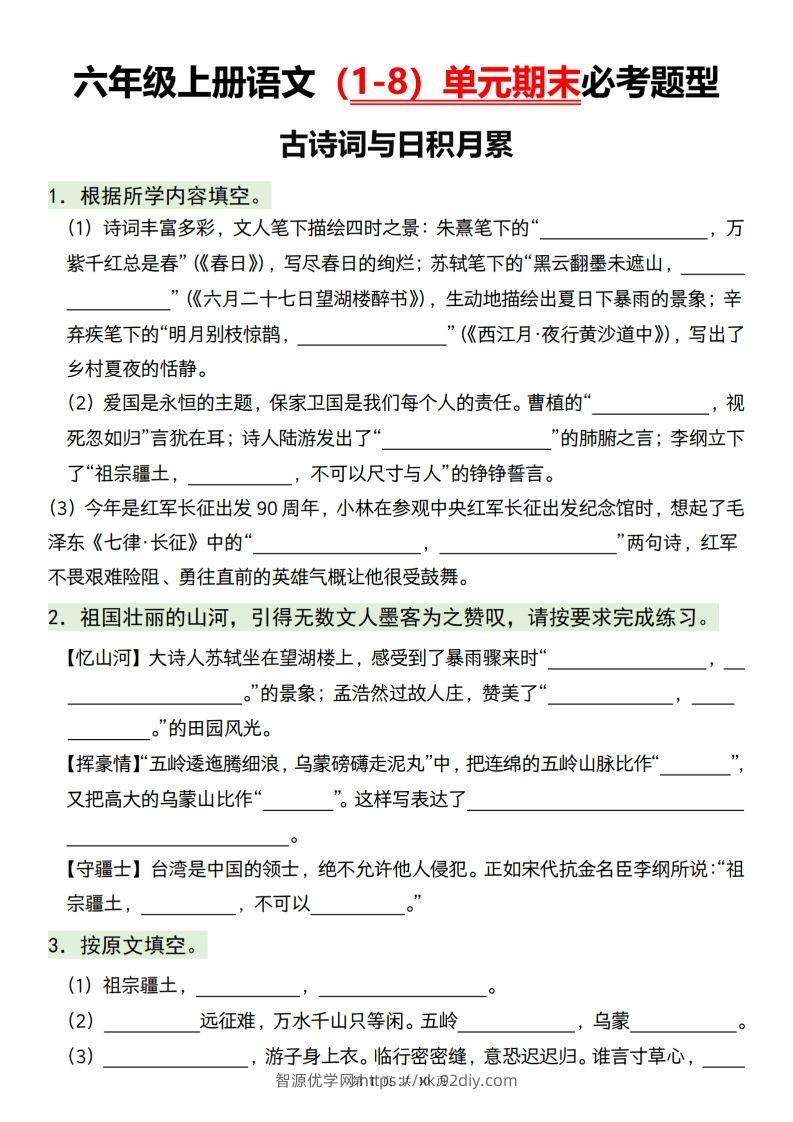 六年级上册语文（1-8）单元期末必考题型
古诗词与日积月累
1．根据所学内容填空。
（1）诗词丰富多彩，文人笔下描绘四时之景：朱熹笔下的“________________，万
紫千红总是春”（《春日》），写尽春日的绚烂；苏轼笔下的“黑云翻墨未遮山，______
__________”（《六月二十七日望湖楼醉书》），生动地描绘出夏日下暴雨的景象；辛
弃疾笔下的“明月别枝惊鹊，______________”（《西江月·夜行黄沙道中》），写出了
乡村夏夜的恬静。
（2）爱国是永恒的主题，保家卫国是我们每个人的责任。曹植的“___________，视
死忽如归”言犹在耳；诗人陆游发出了“________________”的肺腑之言；李纲立下
了“祖宗疆土，__________，不可以尺寸与人”的铮铮誓言。
（3）今年是红军长征出发 90 周年，小林在参观中央红军长征出发纪念馆时，想起了毛
泽东《七律·长征》中的“________________，_________________”两句诗，红军
不畏艰难险阻、勇往直前的英雄气概让他很受鼓舞。
2．祖国壮丽的山河，引得无数文人墨客为之赞叹，请按要求完成练习。
【忆山河】大诗人苏轼坐在望湖楼上，感受到了暴雨骤来时“_______________，__
_________________。”的景象；孟浩然过故人庄，赞美了“____________，____
________。”的田园风光。
【挥豪情】“五岭逶迤腾细浪，乌蒙磅礴走泥丸”中，把连绵的五岭山脉比作“_______”，
又把高大的乌蒙山比作“_______”。这样写表达了__________________________
_____________________。
【守疆士】台湾是中国的领士，绝不允许他人侵犯。正如宋代抗金名臣李纲所说：“祖
宗疆土，_________，不可以_________。”
3．按原文填空。
（1）祖宗疆土，__________，________________。
（2）_________远征难，万水千山只等闲。五岭___________，乌蒙__________。
（3）______________，游子身上衣。临行密密缝，意恐迟迟归。谁言寸草心，____
智源优学网 https://xk.92diy.com